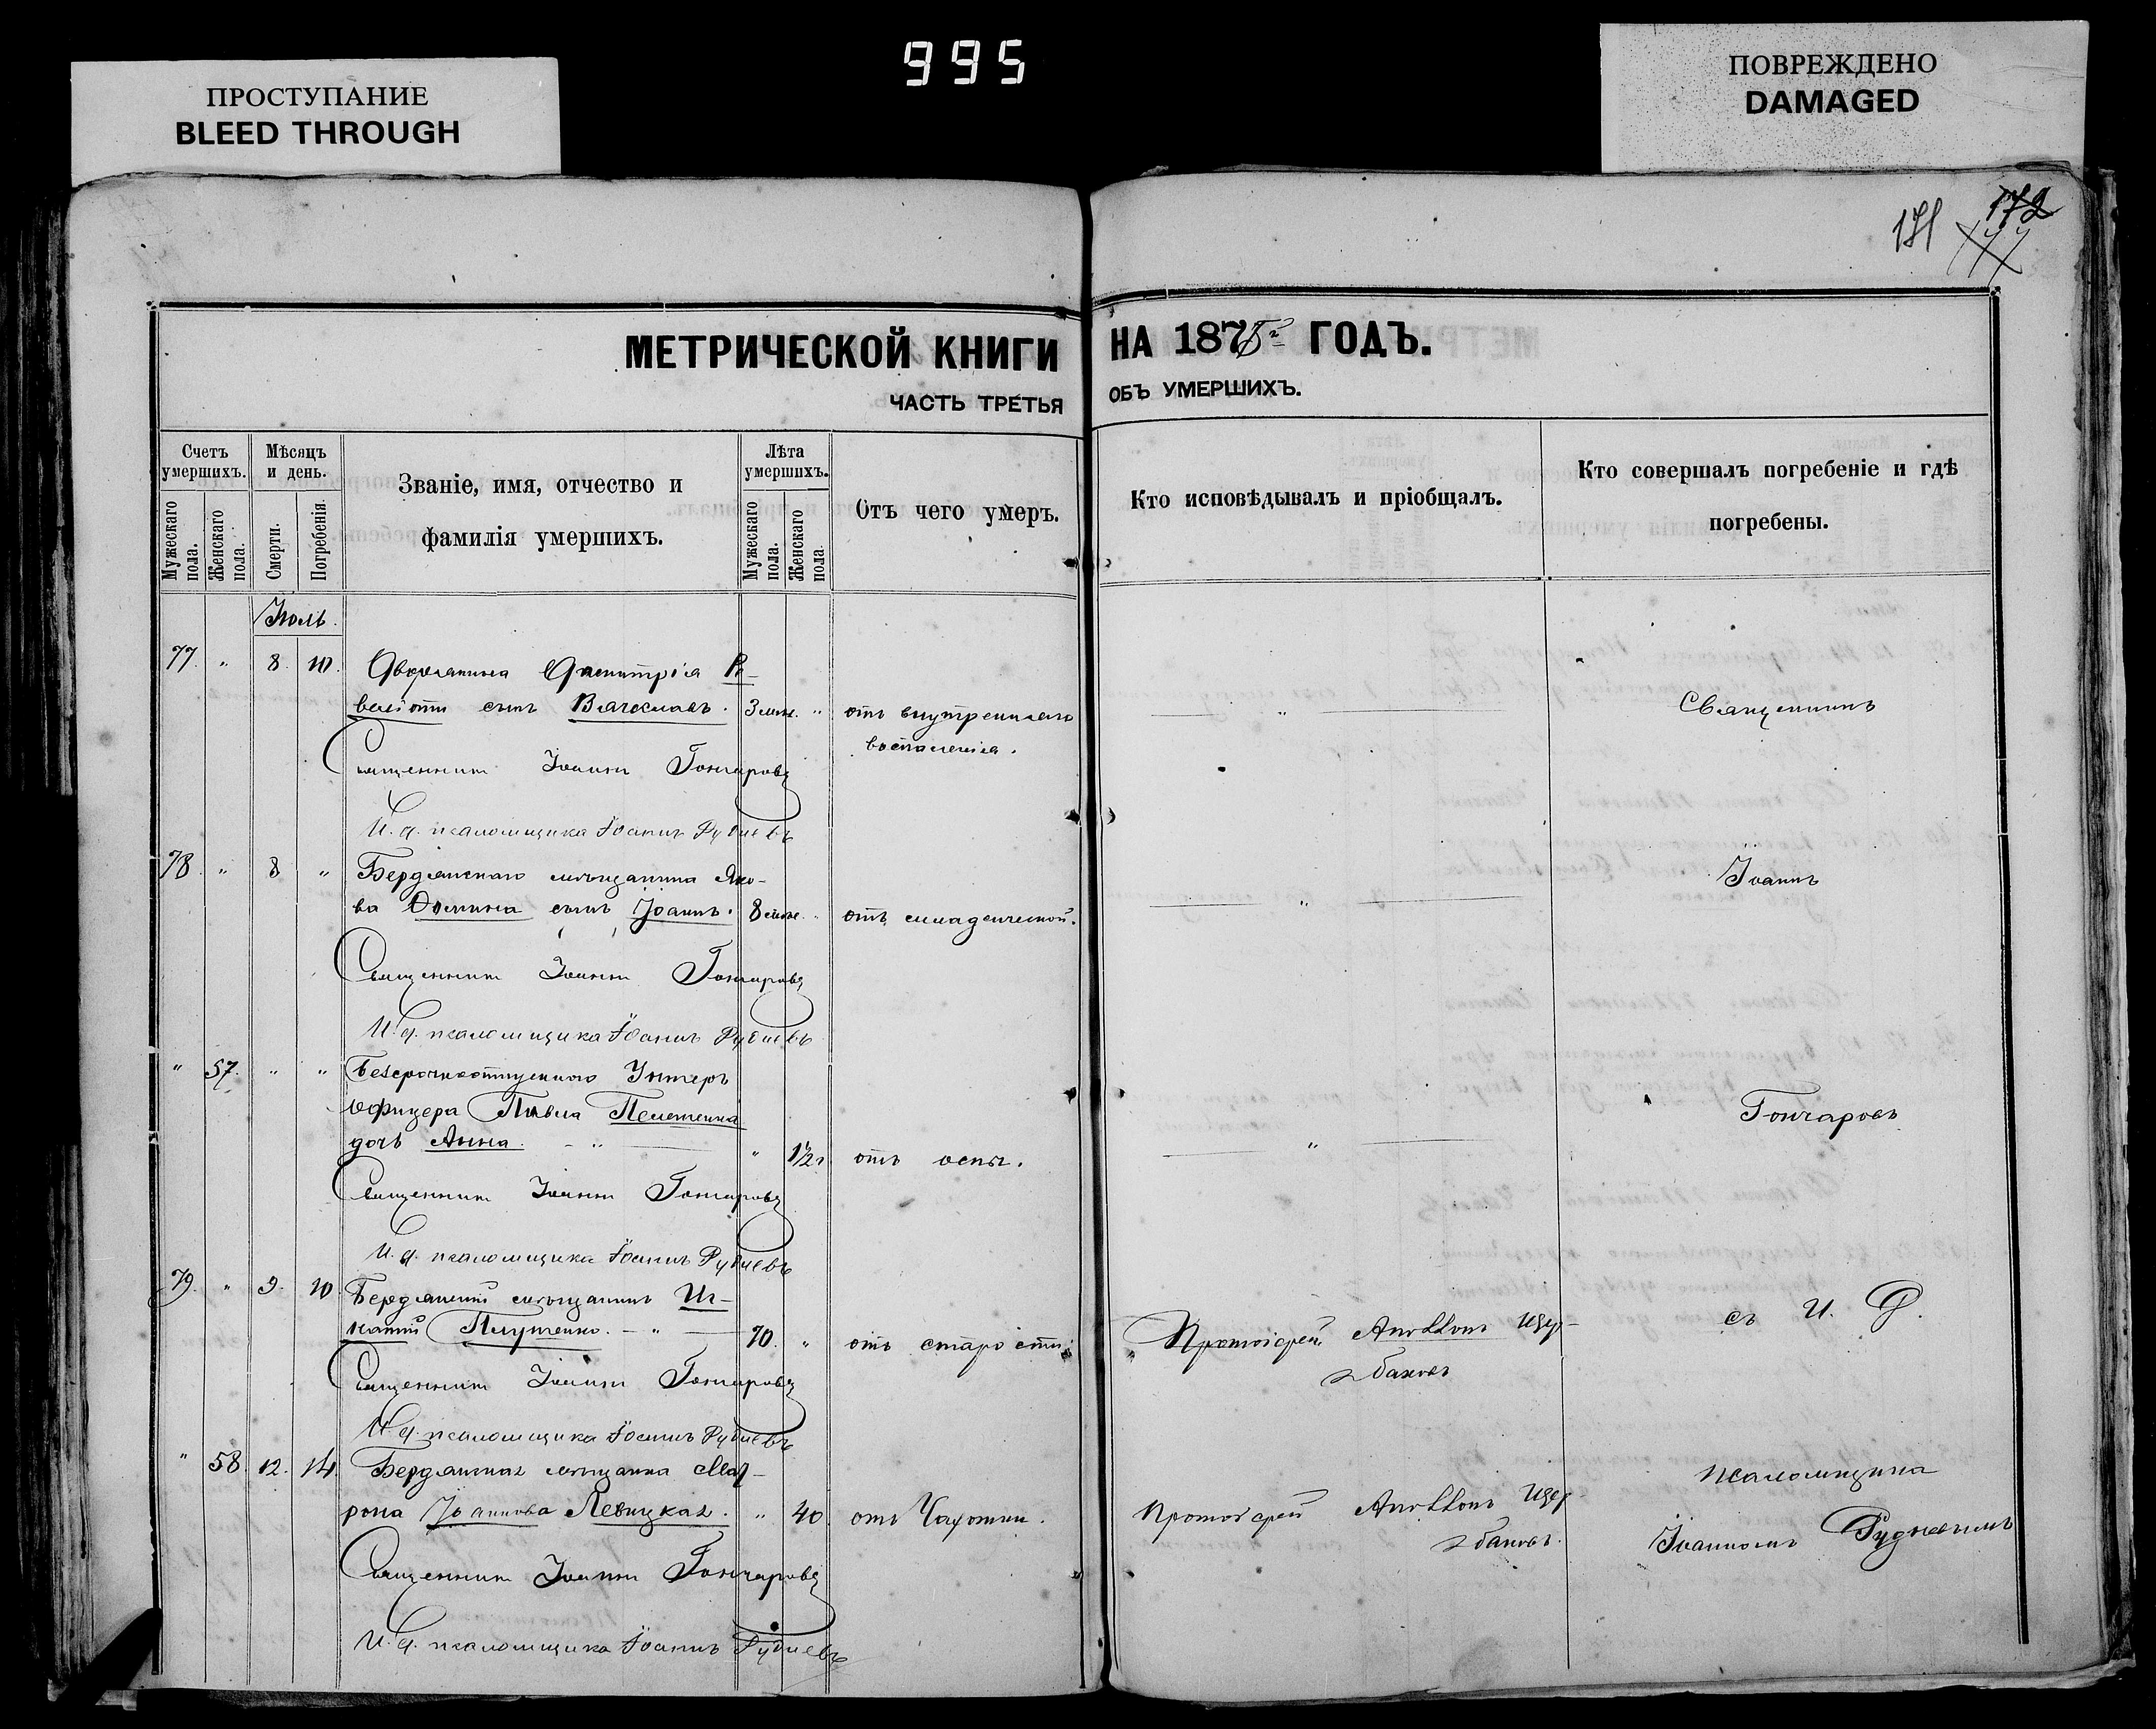 995
ПРОСТУПАНИЕ
BLEED THROUGH
ПОВРЕЖДЕНО
DAMAGED
171
172
177
МЕТРИЧЕСКОЙ КНИГИ НА 1875 г ГОДЪ.
ЧАСТЬ ТРЕТЬЯ ОБЪ УМЕРШИХЪ.
Счетъ умершихъ.
Мужескаго пола.
Женскаго пола.
Мѣсяцъ и день.
Смерти.
Погребенія.
Званіе, имя, отчество и
фамилія умершихъ.
Лѣта умершихъ.
Мужескаго пола.
Женскаго пола.
Отъ чего умеръ.
Кто исповѣдывалъ и пріобщалъ.
Кто совершалъ погребеніе и гдѣ
погребены.
Іюль.
77. " 8. 10. Дворянина Димитрія Ре-
веліоти сынъ Вячеславъ. 3 мѣс. " отъ внутренняго
воспаленія.
Священникъ
Священникъ Іоаннъ Гончаровъ
И. д. псаломщика Іоаннъ Рудневъ
78. " 8 " Бердянскаго мѣщанина Яко-
ва Домина сынъ Іоаннъ. 8 мѣс. " отъ младенческой.
Іоаннъ
Священникъ Іоаннъ Гончаровъ
И. д. псаломщика Іоаннъ Рудневъ
" 57. " " Безсрочноотпускного Унтеръ
Офицера Павла
дочь Анна. " 1½ г отъ оспы.
Гончаровъ
Священникъ Іоаннъ Гончаровъ
И. д. псаломщика Іоаннъ Рудневъ
79. " 9. 10 Бердянскій мѣщанинъ Иг-
натій 70. " отъ старости
Протоіерей Аполлонъ Щер-
баковъ
съ И. Д.
Священникъ Іоаннъ Гончаровъ
И. д. псаломщика Іоаннъ Рудневъ
" 58. 12. 14. Бердянская мѣщанка Мат-
рона Іоаннова Левицкая. " 40 отъ Чахотки.
Протоіерей Аполлонъ Щер-
баковъ.
псаломщика
Іоанномъ Рудневымъ
Священникъ Іоаннъ Гончаровъ
И. д. псаломщика Іоаннъ Рудневъ